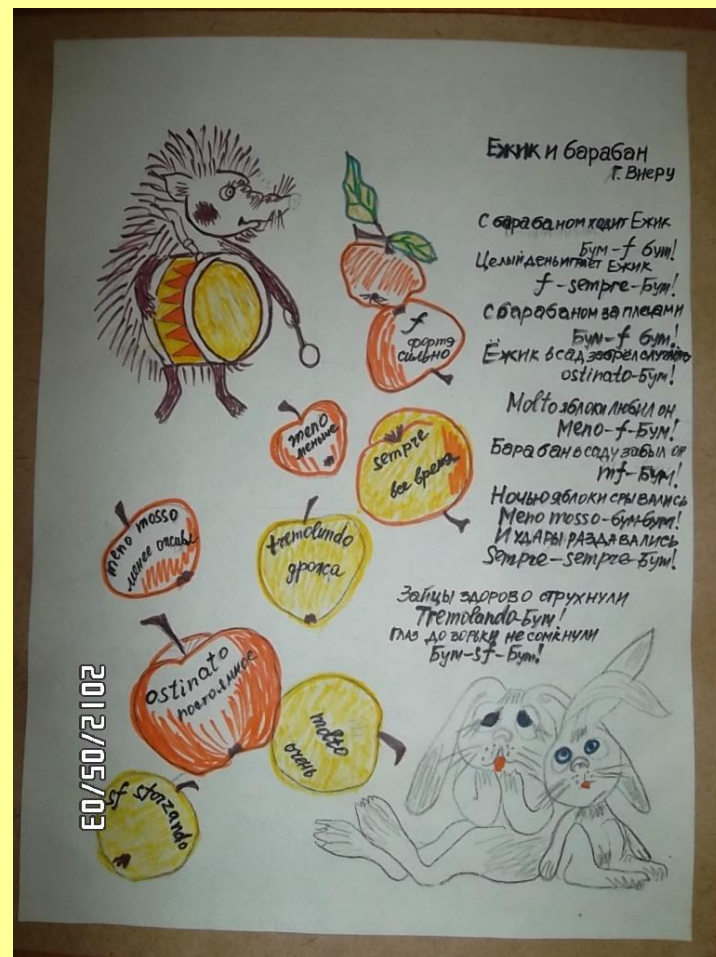 Ежик и барабан
Г. Виеру
С барабаном ходит Ежик
Бум-f бум!
Целый день играет Ежик
f-sempre-Бум!
С барабаном за плечами
Бум-f бум!
Ёжик в сад забрел случайно
ostinato-Бум!
Molto яблоки любил он
Meno-f-Бум!
Барабан в саду забыл он
mf-Бум!
Ночью яблоки срывались
Meno mosso-бум-бум!
И удары раздавались
Sempre-sempre-Бум!
Зайцы здорово струхнули
Tremolando-Бум!
Глаз до зорьки не сомкнули
Бум-sf-Бум!
f
фортэ
сильно
meno
меньше
sempre
все время
meno mosso
менее
tremolando
дрожа
ostinato
постоянное
molto
очень
sf sforzando
2012/05/03